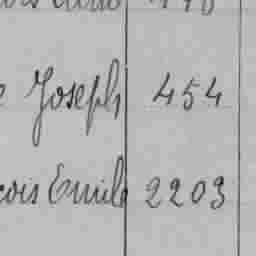 Joseph 454
çois Emile 2203